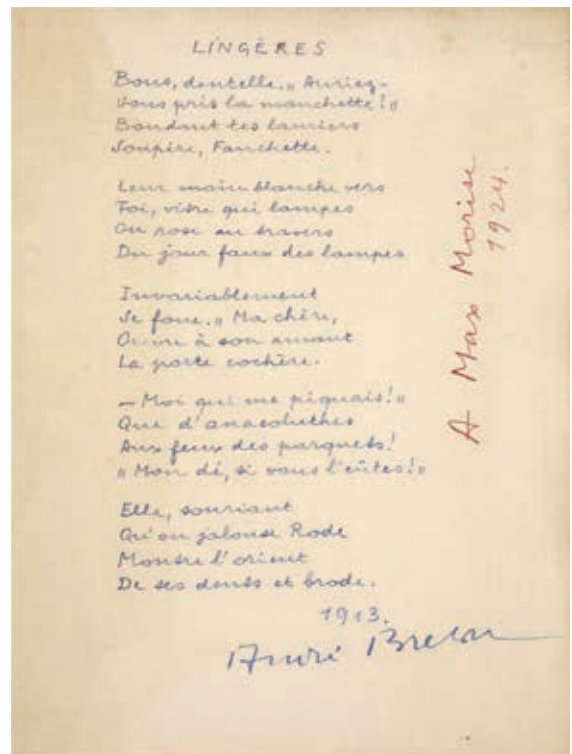 LINGÈRES
Bous, dentelle. „ Auriez-
Vous pris la manchette ! „
Boudant tes lauriers
Soupire, Fanchette.
Leur main blanche vers
Toi, vitre qui lampes
Ou rose au travers
Du jour faux des lampes
Invariablement
Se fane. „ Ma chère,
Ouvre à son amant
La porte cochère.
— Moi qui me piquais ! „
Que d'anacoluthes
Aux feux des parquets !
„ Mon dé, si vous l'eûtes ! „
Elle, souriant
Qu'on jalouse Rode
Montre l'orient
De ses dents et brode.
1913.
André Breton
A Max Morise
1924.